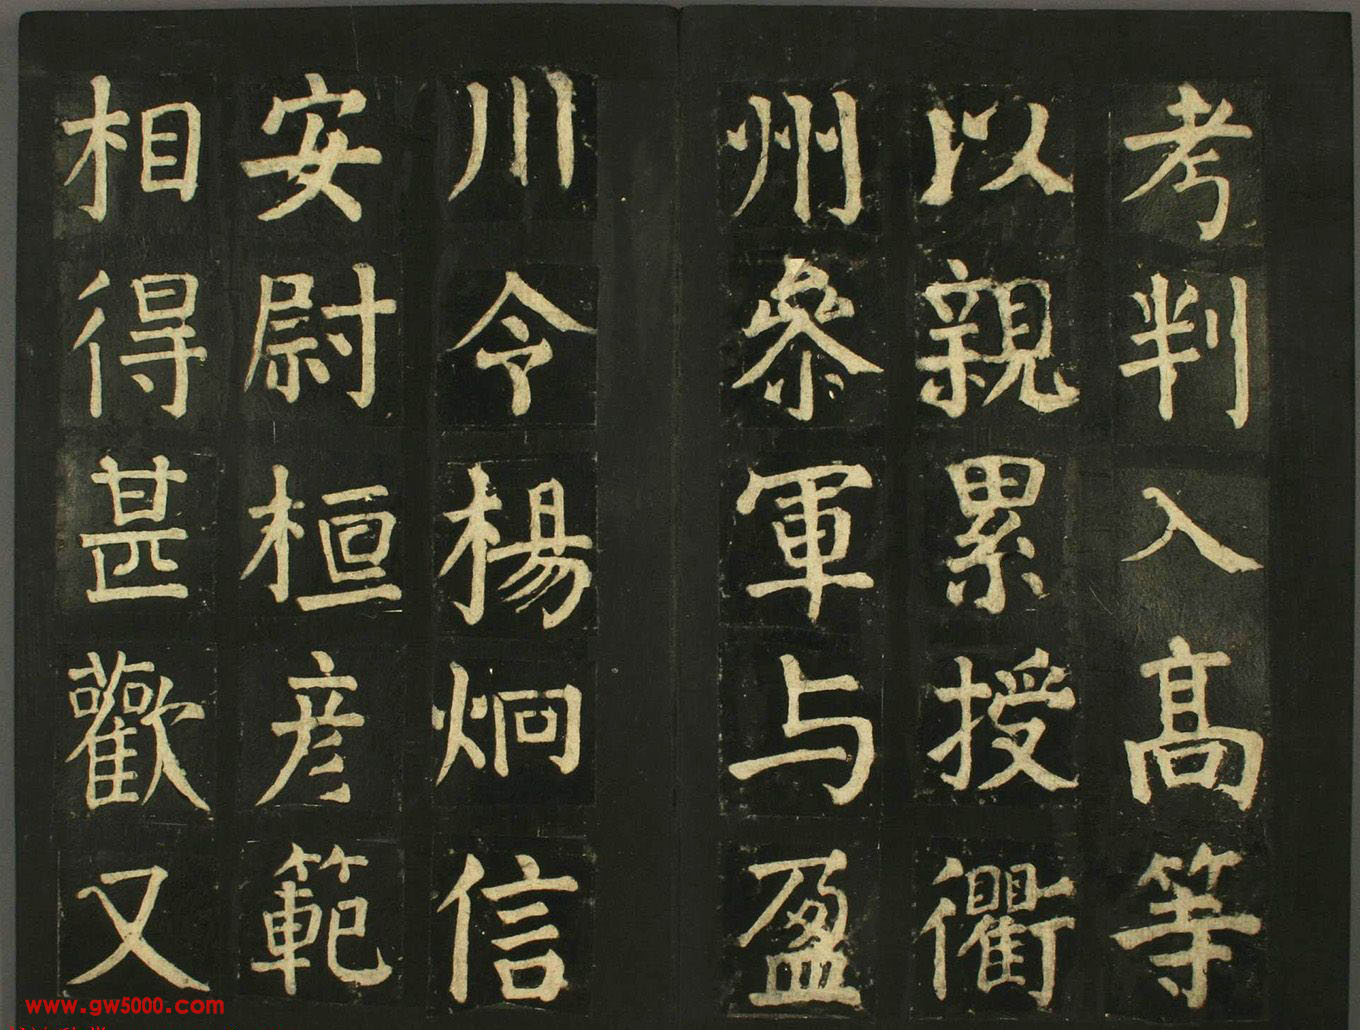 考判入高等
以親累授衢
州叅軍与盈
川令楊炯信
安尉桓彥範
相得甚歡又
www.gw5000.com